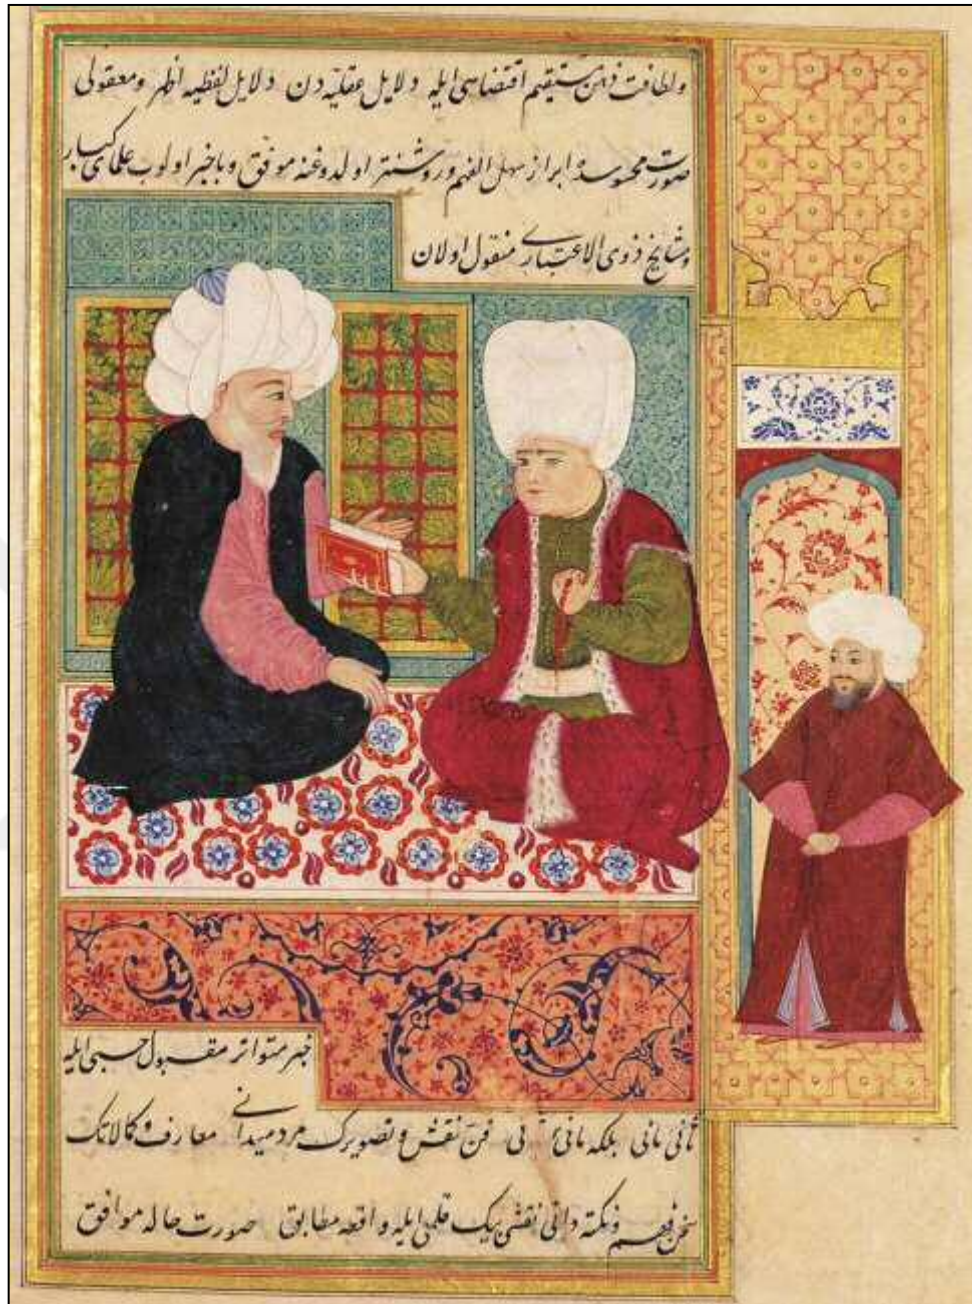 ولطافت ذهن مستقیم اقتضاسی ایله دلایل عقلیه دن دلایل لفظیه اظهر ومعقولی
صورت محسوسده ابراز سهل الفهم وروشنتر اولدوغنه موفق وباخبر اولوب علمای کبار
ومشایخ ذوی الاعتباردن منقول اولان
خبر متواتر مقبول حسبی ایله
ثانی مانی بلکه مانئ ثانی فن نقش وتصویرک مرد میدانی معارف وکمالاتک
سخن فهم ونکته دانی نقشی بیک قلمی ایله واقعه مطابق صورت حاله موافق